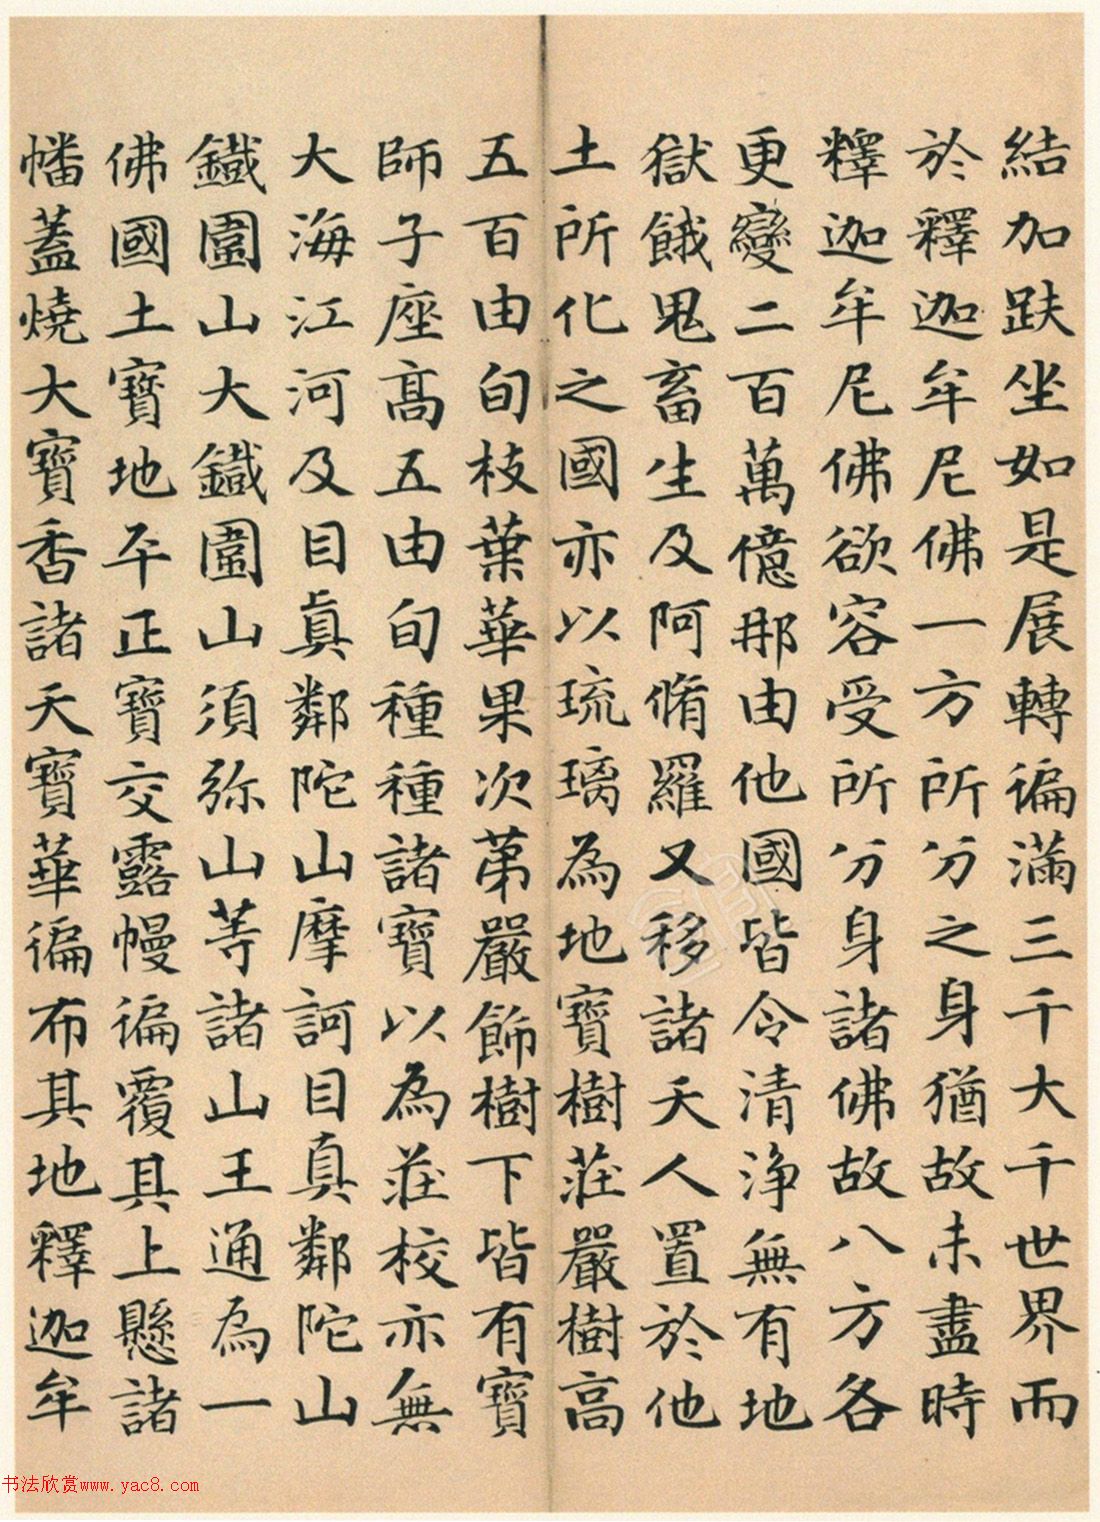 結加趺坐如是展轉徧滿三千大千世界而
於釋迦牟尼佛一方所分之身猶故未盡時
釋迦牟尼佛欲容受所分身諸佛故八方各
更變二百萬億那由他國皆令清淨無有地
獄餓鬼畜生及阿脩羅又移諸天人置於他
土所化之國亦以琉璃為地寶樹莊嚴樹高
五百由旬枝葉華果次第嚴飾樹下皆有寶
師子座高五由旬種種諸寶以為莊校亦無
大海江河及目真鄰陀山摩訶目真鄰陀山
鐵圍山大鐵圍山須弥山等諸山王通為一
佛國土寶地平正寶交露幔徧覆其上懸諸
幡蓋燒大寶香諸天寶華徧布其地釋迦牟
书法欣赏www.yac8.com